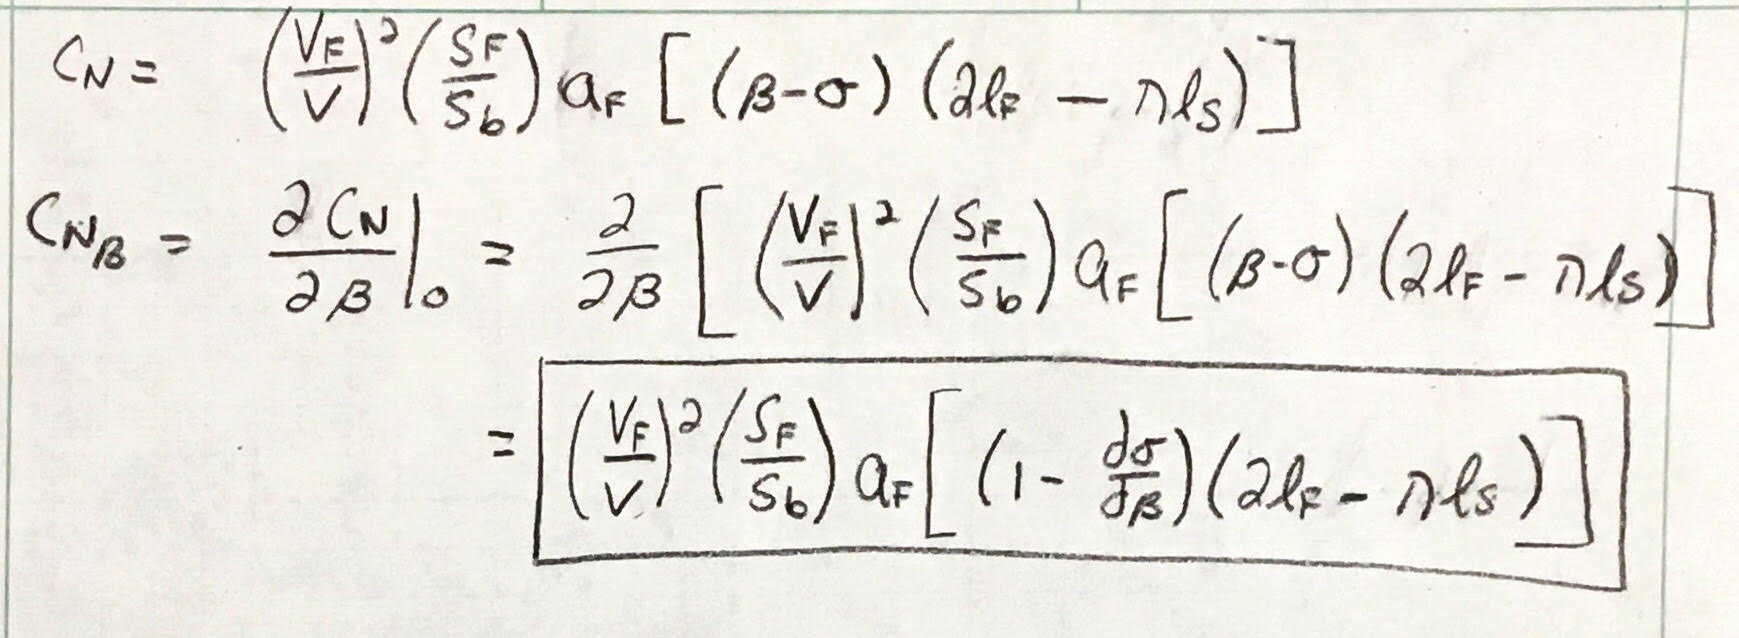 C_N = (V_F/V)² (S_F/S_b) a_F [(β-σ) (2l_F - ηl_S)]
C_Nβ = ∂C_N/∂β|₀ = ∂/∂β [(V_F/V)² (S_F/S_b) a_F [(β-σ) (2l_F - ηl_S)]
= (V_F/V)² (S_F/S_b) a_F [(1 - ∂σ/∂β) (2l_F - ηl_S)]